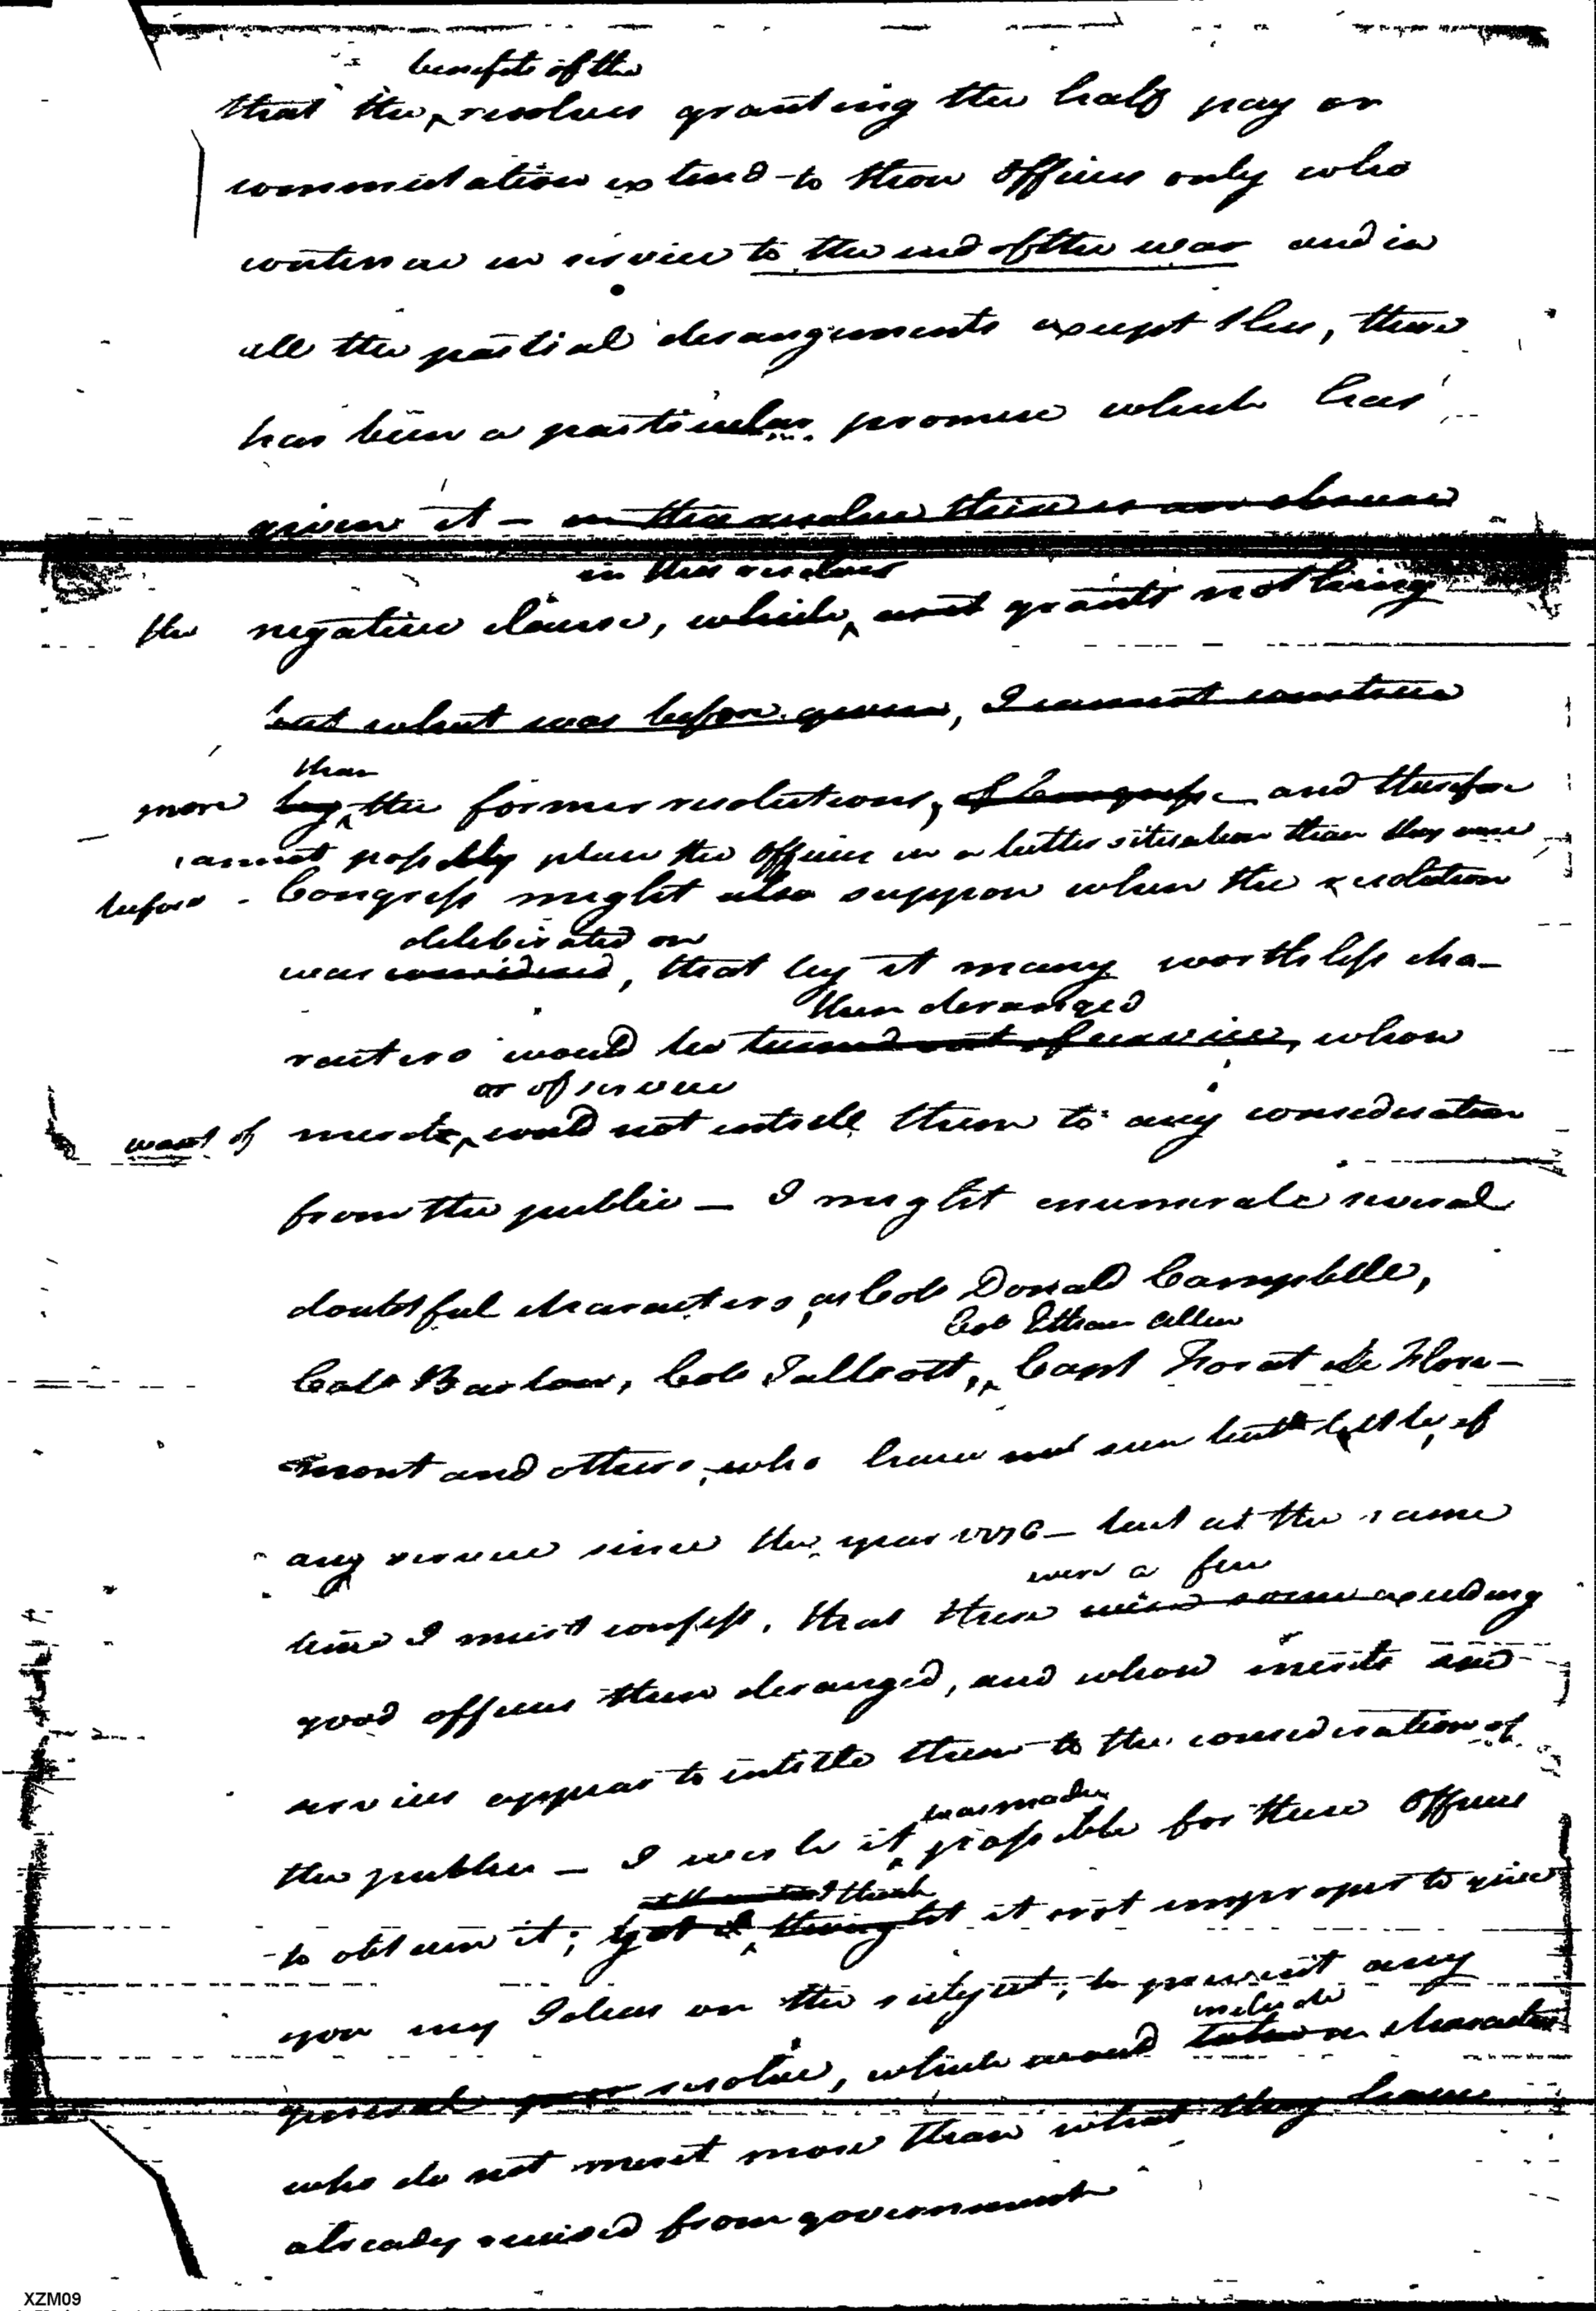 benefits of the
that the resolves granting the half pay or
commutation extend to those Officers only who
continue in service to the end of the war and in
all the partial derangements except this, there
has been a particular promise which has
given it – in this resolve there is no clause
in this resolves
the negative clause, which, and grants nothing
but what was before given, I cannot construe
than
more by the former resolutions, of Congress – and therefore
cannot possibly place the Officers in a better situation than they were
before - Congress might also suppose when the resolution
deliberated on
was considered, that by it many worthless cha-
then deranged
racters would be turned out of service, whose
or of service
want of merit, would not entitle them to any consideration
from the public – I might enumerate several
doubtful characters, as Colo Donald Campbelle,
Col Ethan Allen
Colo Barlow, Colo Tallcott, Capt Norat De Flore-
mont and others, who have not seen but little, of
any service since the year 1776 – but at the same
were a few
time I must confess, that there were some exceeding
good officers then deranged, and whose merits and
services appear to intitle them to the consideration of
was made
the public – I wish it possible for these Officers
I think
to obtain it; yet I thought it not improper to give
you my Ideas on the subject, to prevent any
include
general resolve, which would take in characters
who do not merit more than what they have
already received from government
XZM09